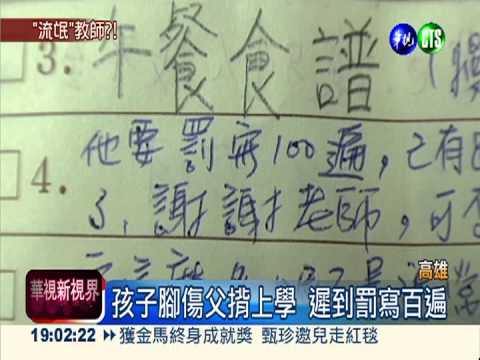 "流氓"教師?!
華視 CTS
3. 午餐食譜
他要罰寫100遍,已有
4.
了,謝謝老師,可
高雄
華視新視界
孩子腳傷父揹上學 遲到罰寫百遍
19:02:22 ▸▸獲金馬終身成就獎 甄珍邀兒走紅毯